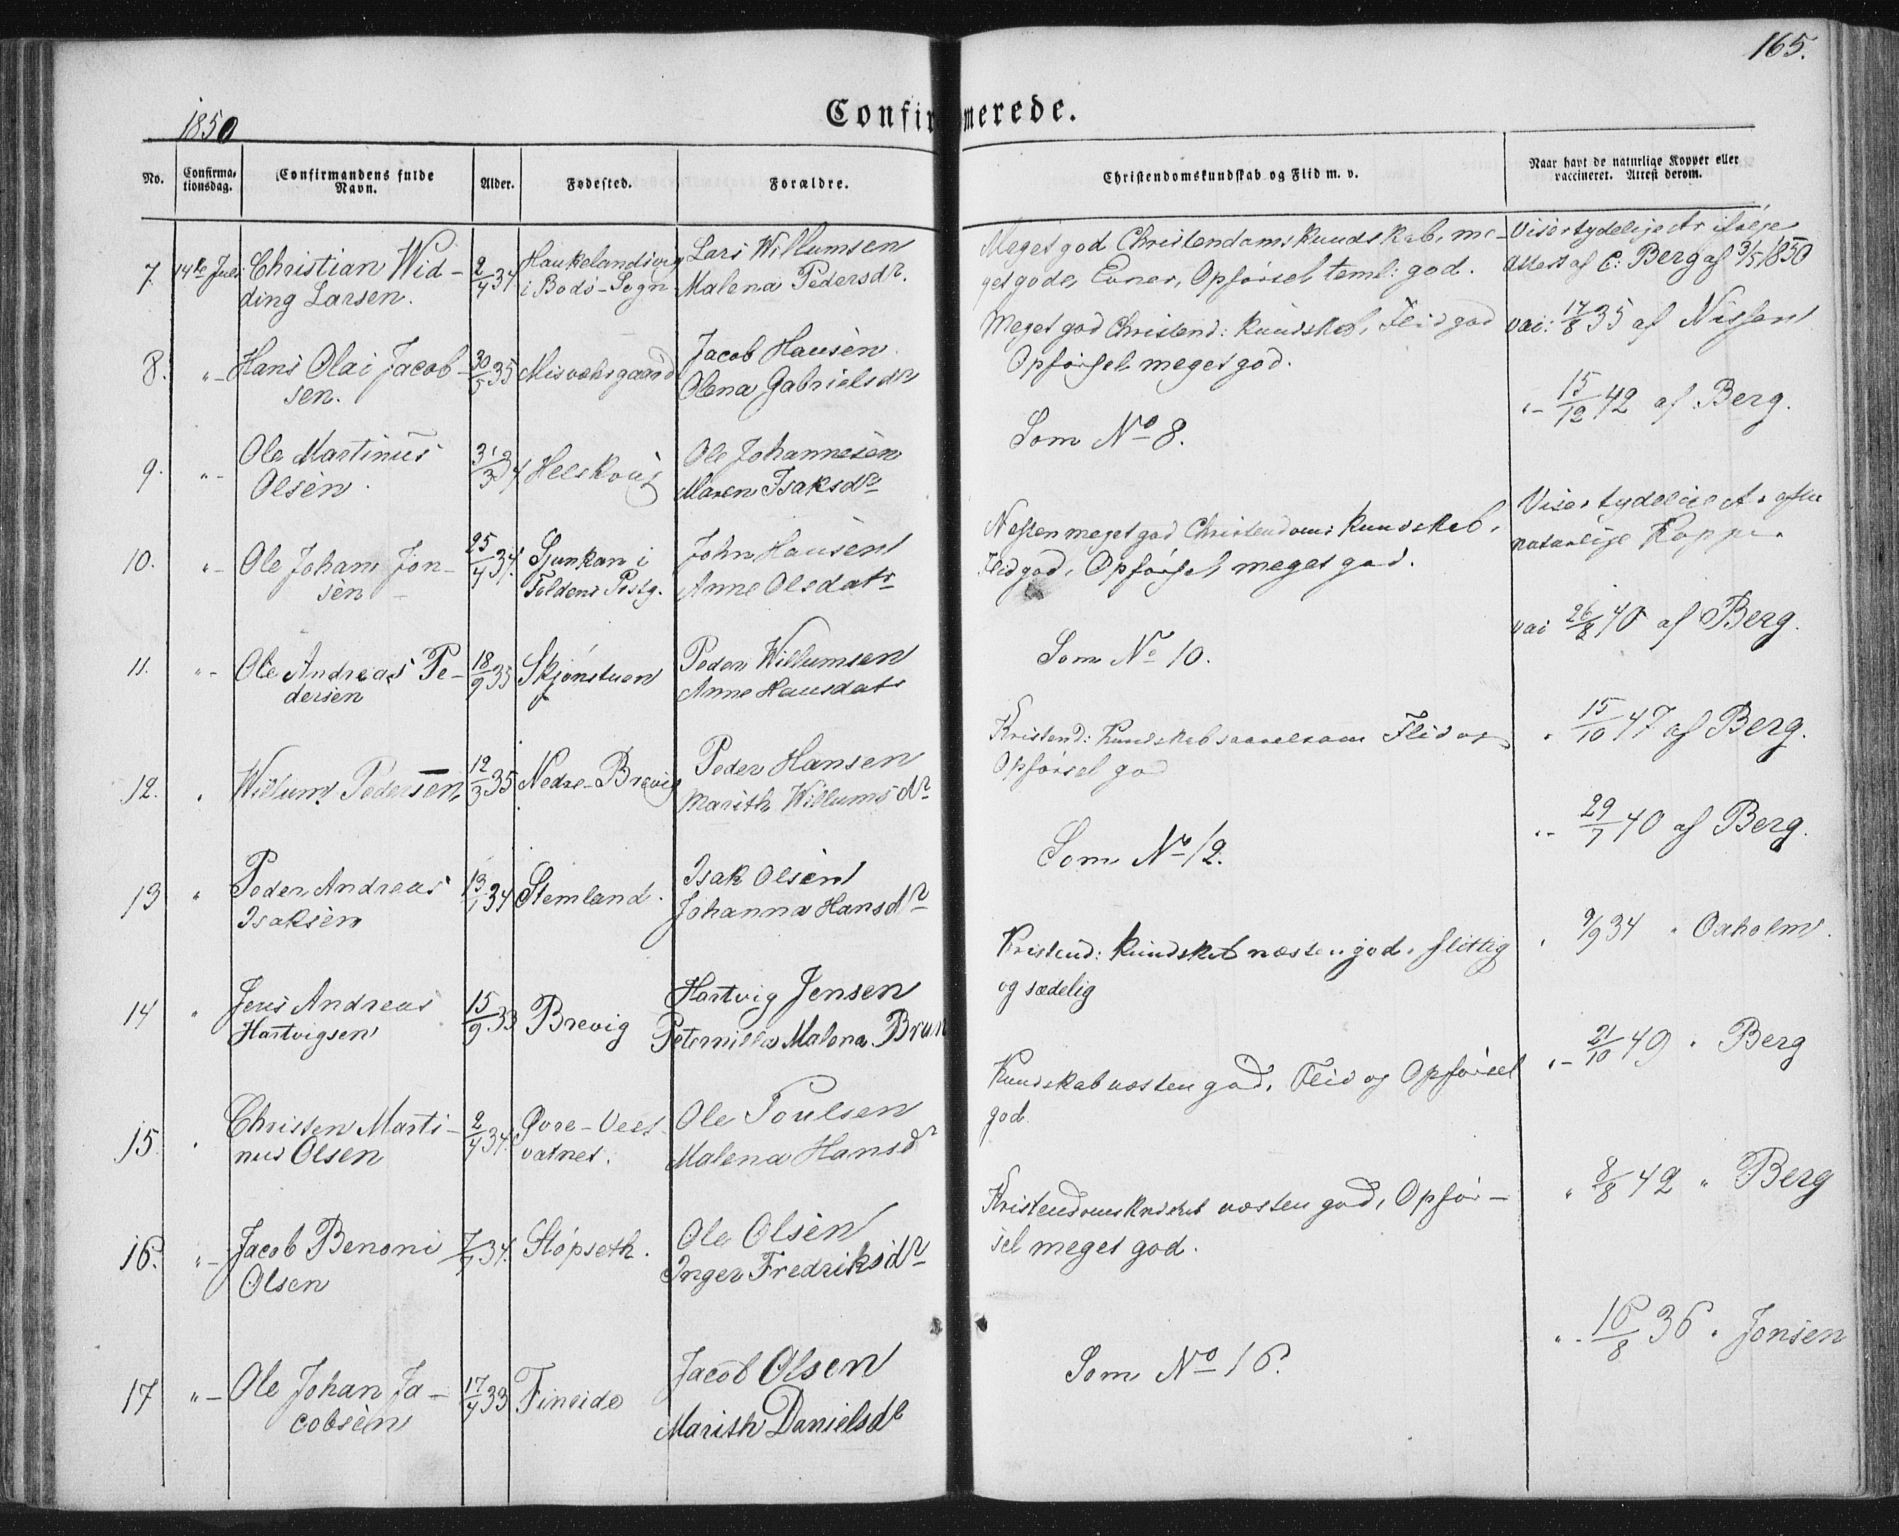 165.
1850
Confirmerede.
No.
Confirma-
tionsdag.
Confirmandens fulde
Navn.
Alder.
Fødested.
Forældre.
Christendomskundskab og Flid m. v.
Naar havt de naturlige Kopper eller
vaccineret. Attest derom.
7. 14de Juli Christian Wid-
ding Larsen.
2/4 34
i Bodø-Sogn
Lars Willumsen
Malena Pedersdr.
Meget god Christendomskundskab, me-
get gode Evner, Opførsel teml: god.
Viser tydelige Ar ifølge
Attest af C: Berg af 3/5 1850
8. "- Hans Olai Jacob-
sen.
30/5 35
Misværsgaard
Jacob Hansen
Olena Gabrielsdr
Meget god Christend: Kundskab, Flid god
Opførsel meget god.
vac: 17/8 35 af Nissen
9. "- Ole Martinus
Olsen.
31/3 34
Ole Johannesen
Maren Isaksdr
Som No 8.
"- 15/12 42 af Berg.
10. "- Ole Johan Jon-
sen
25/4 34.
Sjunkan i
Foldens Prstg.
John Hansen
Anne Olsdatr
Nesten meget god Christendoms Kundskab,
Flid god, Opførsel meget god.
Viser tydelige Ar efter
naturlige Kopper
11. "- Ole Andreas Pe-
dersen
18/9 35
Skjønstuen
Peder Willumsen
Anne Hansdatr
Som No 10.
vac 26/8 40 af Berg.
12. " Willum Pedersen
12/3 35
Nedre-Brevig
Peder Hansen
Marith Willumsdr
Kristend: Kundskab saavelsom Flid og
Opførsel god
" 15/10 47 af Berg.
13 " Peder Andreas
Isaksen
13/1 34
Stemland.
Isak Olsen
Johanna Hansdr
Som No 12.
"- 29/7 40 af Berg.
14 " Jens Andreas
Hartvigsen
15/9 33
Brevig
Hartvig Jensen
Peternille Malena Brun
Kristend: Kundskab næsten god, flittig
og sædelig
" 9/9 34 " Oxholm.
15. " Christen Marti-
nus Olsen
2/4 34.
Øvre-Vees
vatnet.
Ole Poulsen
Malena Hansdr
Kundskab næsten god, Flid og Opførsel
god.
"- 21/10 49 " Berg
16. "- Jacob Benoni
Olsen
34.
Støpseth.
Ole Olsen
Inger Fredriksdr
Kristendomskndskab næsten god, Opfør-
sel meget god.
" 8/8 42 " Berg
17 "- Ole Johan Ja-
cobsen
17/4 33
Fineide
Jacob Olsen
Marith Danielsdr
Som No 16.
"- 16/8 36 " Jonsen